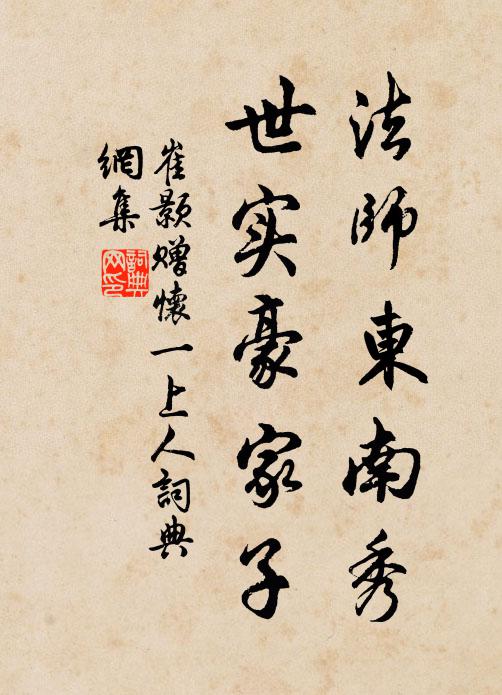 法師東南秀
世实豪家子
崔颢赠懷一上人詞典
網集
詞典
网印